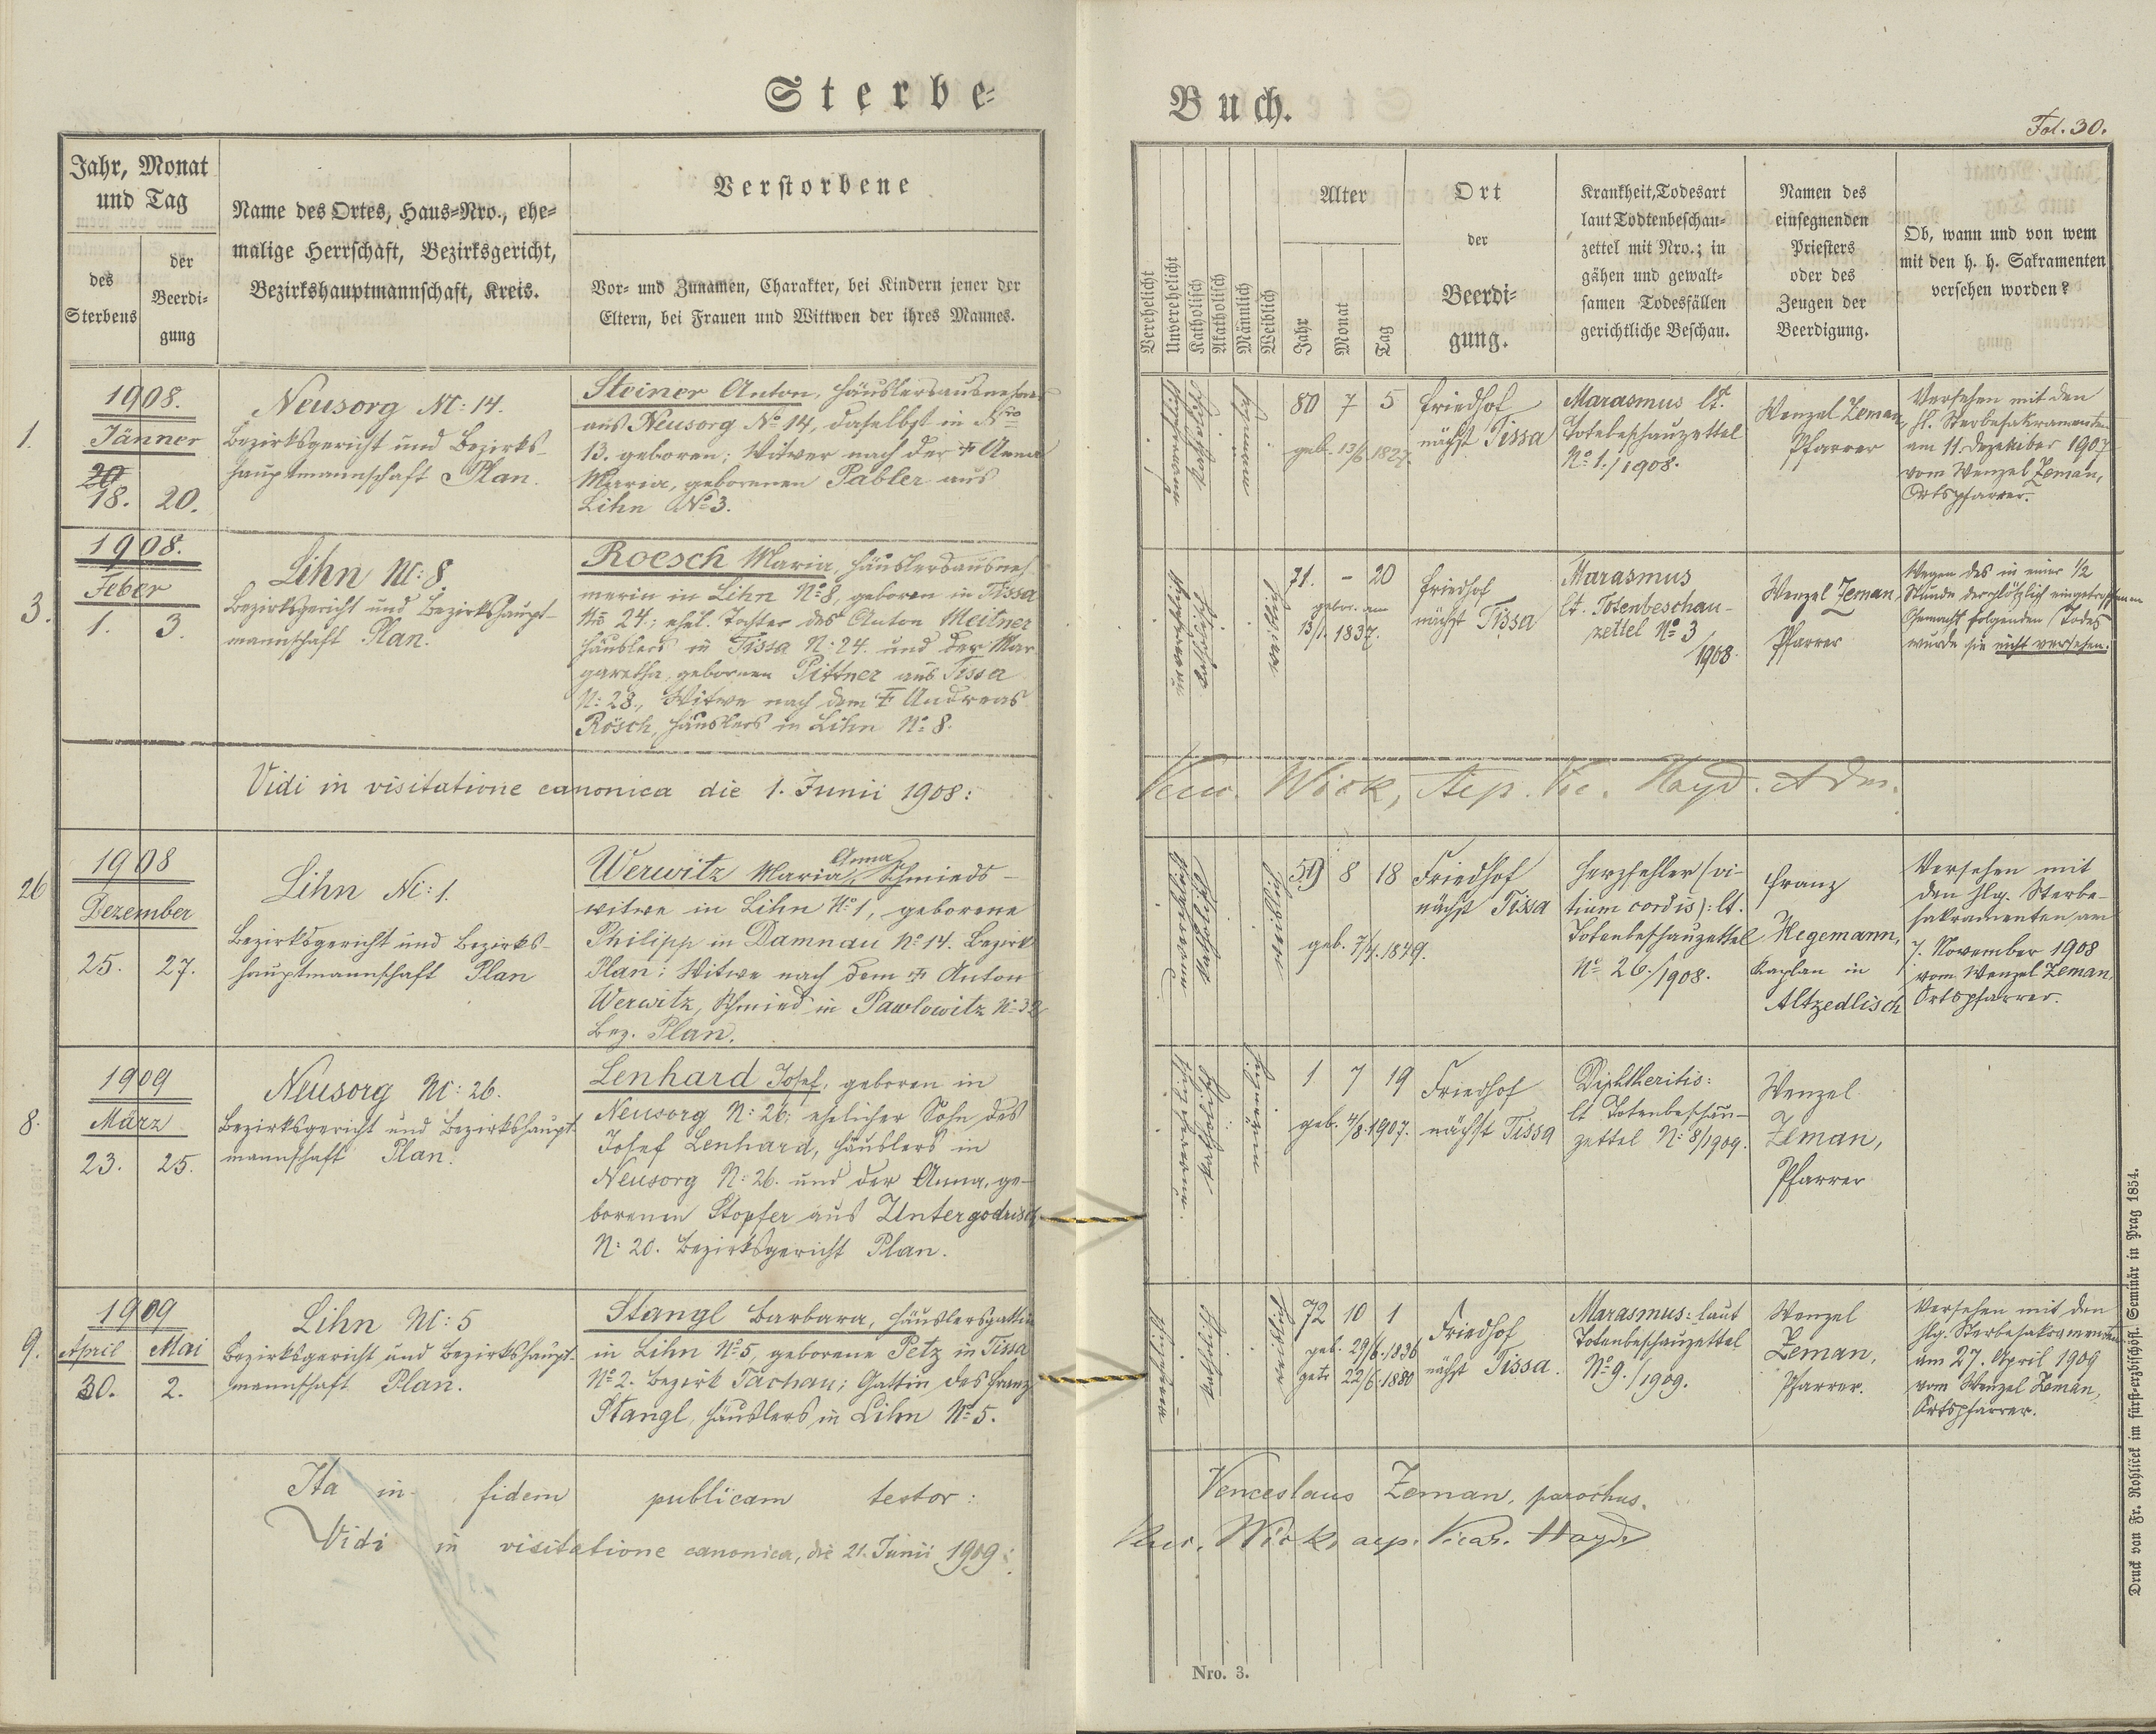 Sterbe=
Buch.
Fol. 30.
Jahr, Monat
und Tag
des
Sterbens
der
Beerdi=
gung
Name des Ortes, Haus=Nro., ehe=
malige Herrschaft, Bezirksgericht,
Bezirkshauptmannschaft, Kreis.
Verstorbene
Vor= und Zunamen, Charakter, bei Kindern jener der
Eltern, bei Frauen und Wittwen der ihres Mannes.
Verehelicht
Unverehelicht
Katholisch
Akatholisch
Männlich
Weiblich
Alter
Jahr
Monat
Tag
Ort
der
Beerdi=
gung.
Krankheit, Todesart
laut Todtenbeschau=
zettel mit Nro.; in
gähen und gewalt=
samen Todesfällen
gerichtliche Beschau.
Namen des
einsegnenden
Priesters
oder des
Zeugen der
Beerdigung.
Ob, wann und von wem
mit den h. h. Sakramenten
versehen worden?
1.
1908.
Jänner
20
18. 20.
Neusorg N: 14.
Bezirksgericht und Bezirks-
hauptmannschaft Plan.
Steiner Anton, Häuslersausnehmer
aus Neusorg No 14, daselbst in Nro
13. geboren; Witwer nach der † Anna
Maria, geborenen Pabler aus
Lihn No 3.
80 7 5
geb. 13/6 1827.
Friedhof
nächst Tissa
Marasmus lt.
Totebeschauzettel
No 1./1908.
Wenzel Zeman,
Pfarrer
Versehen mit den
hl. Sterbesakramenten
am 11. Dezember 1907
vom Wenzel Zeman,
Ortspfarrer.
3.
1908.
Feber
1. 3.
Lihn N: 8.
Bezirksgericht und Bezirkshaupt-
mannschaft Plan.
Roesch Maria, Häuslersausneh
merin in Lihn No 8, geboren in Tissa
No 24; ehel. Tochter des Anton Meitner
Häuslers in Tissa N: 24. und der Mar
garetha, gebornen Pittner aus Tissa
N: 28., Witwe nach dem † Andreas
Rösch, Häuslers in Lihn No 8.
71. - 20
gebor. am
13/1. 1837.
Friedhof
nächst Tissa
Marasmus
lt. Totenbeschau-
zettel No 3
/1908.
Wenzel Zeman,
Pfarrer
Wegen des in einer 1/2
Stunde der plötzlich eingetroffenen
folgenden Todes
wurde sie nicht versehen.
Vidi in visitatione canonica die 1. Junii 1908:
Wick, Vic. Hayd. Adm.
26
1908
Dezember
25. 27.
Lihn N: 1.
Bezirksgericht und Bezirks-
hauptmannschaft Plan
Anna
Werwitz Maria, Schmieds-
witwe in Lihn No 1, geborene
Philipp in Damnau No 14. Bezirk
Plan; Witwe nach dem † Anton
Werwitz, Schmied in Pawlowitz No 32
Bez. Plan.
59 8 18
geb. 7/4. 1849.
Friedhof
nächst Tissa
Herzfehler (vi-
tium cordis): lt.
Totenbeschauzettel
No 26./1908.
Franz
Hegemann,
Kaplan in
Altzedlisch
Versehen mit
den hlg. Sterbe-
sakramenten am
7. November 1908
vom Wenzel Zeman,
Ortspfarrer.
8.
1909
März
23. 25.
Neusorg N: 26.
Bezirksgericht und Bezirkshaupt-
mannschaft Plan.
Lenhard Josef, geboren in
Neusorg N: 26; ehelicher Sohn des
Josef Lenhard, Häuslers in
Neusorg N: 26. und der Anna, ge-
borenen Stopfer aus Untergodrisch
N: 20. Bezirksgericht Plan.
1 7 19
geb. 4/8.1907.
Friedhof
nächst Tissa
Diphtheritis:
lt Totenbeschau-
zettel N: 8/1909.
Wenzel
Zeman,
Pfarrer
9.
1909
April Mai
30. 2.
Lihn N: 5
Bezirksgericht und Bezirkshaupt-
mannschaft Plan.
Stangl Barbara, Häuslersgattin
in Lihn No 5, geborene Petz in Tissa
No 2. Bezirk Tachau; Gattin des Franz
Stangl, Häuslers in Lihn No 5.
72 10 1
geb. 29/6.1836
getr. 22/6.1880
Friedhof
nächst Tissa.
Marasmus: laut
Totenbeschauzettel
No 9./1909.
Wenzel
Zeman,
Pfarrer.
Versehen mit den
hlg. Sterbesakramenten
am 27. April 1909
vom Wenzel Zeman,
Ortspfarrer.
Ita in fidem publicam testor:
Venceslaus Zeman, parochus.
Vidi in visitatione canonica, die 21. Junii 1909:
Wick, aep. Vicar. Hayd
Nro. 3.